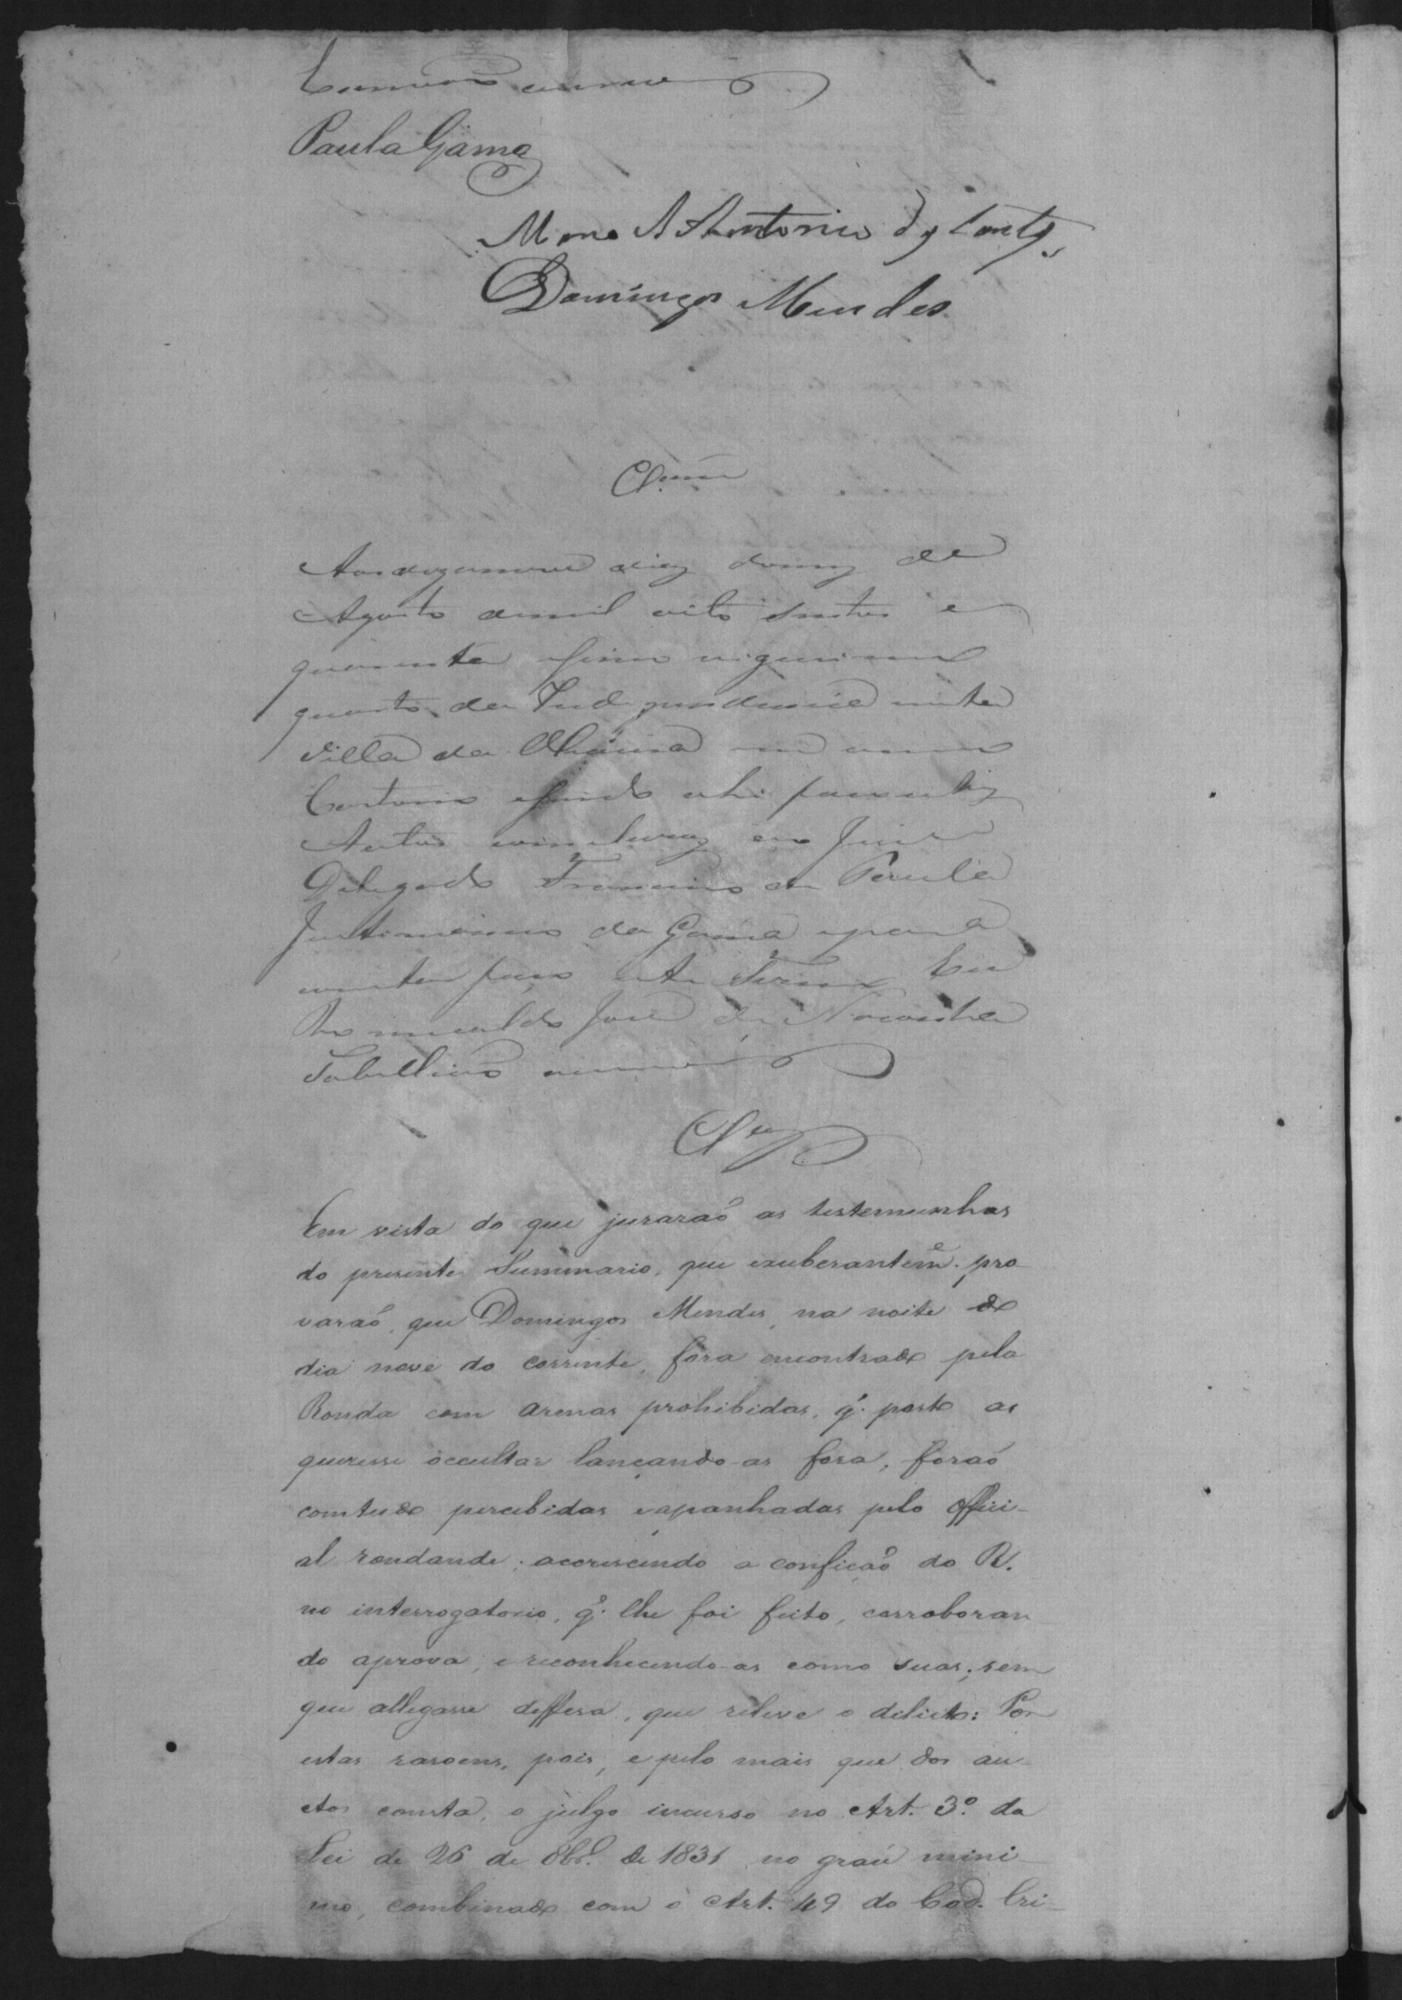 Paula Gama
Antonio da Costa
Domingos Mendes
Clsam
Aos dezanove dias do mez de
Agosto de mil oito centos e
quarenta e sinco vigesimo
quarto da Independencia nesta
Villa da em meu
Cartorio e sendo ahi faco estes
Autos conclusos ao Juis
Delegado Francisco de Paula
Justiniano da Gama e para
constar faço este Termo Eu
Romualdo José de Noronha
Tabelliaõ
Clsos
Em vista do que juraraõ as testemunhas
do presente Summario, que exuberantem.e pro
varaõ, que Domingos Mendes, na noite do
dia nove do corrente, fora encontrado pela
Ronda com armas prohibidas, q.' posto as
quisesse occultar lançando-as fora, foraõ
comtudo percebidas e apanhadas pelo offici-
al rondande; accrescendo a conficaõ do R.
no interrogatorio, q.' lhe foi feito, corroboran
do aprova, e reconhecendo-as como suas; sem
que allegasse deffesa, que releve o delicto: Por
estas rasoens, pois, e pelo mais que dos au-
ctos consta, o julgo incurso no Art. 3.º da
Lei de 26 de 8br.º de 1831 no grau mini
mo, combinado com o Art. 49 do Cod. Cri-